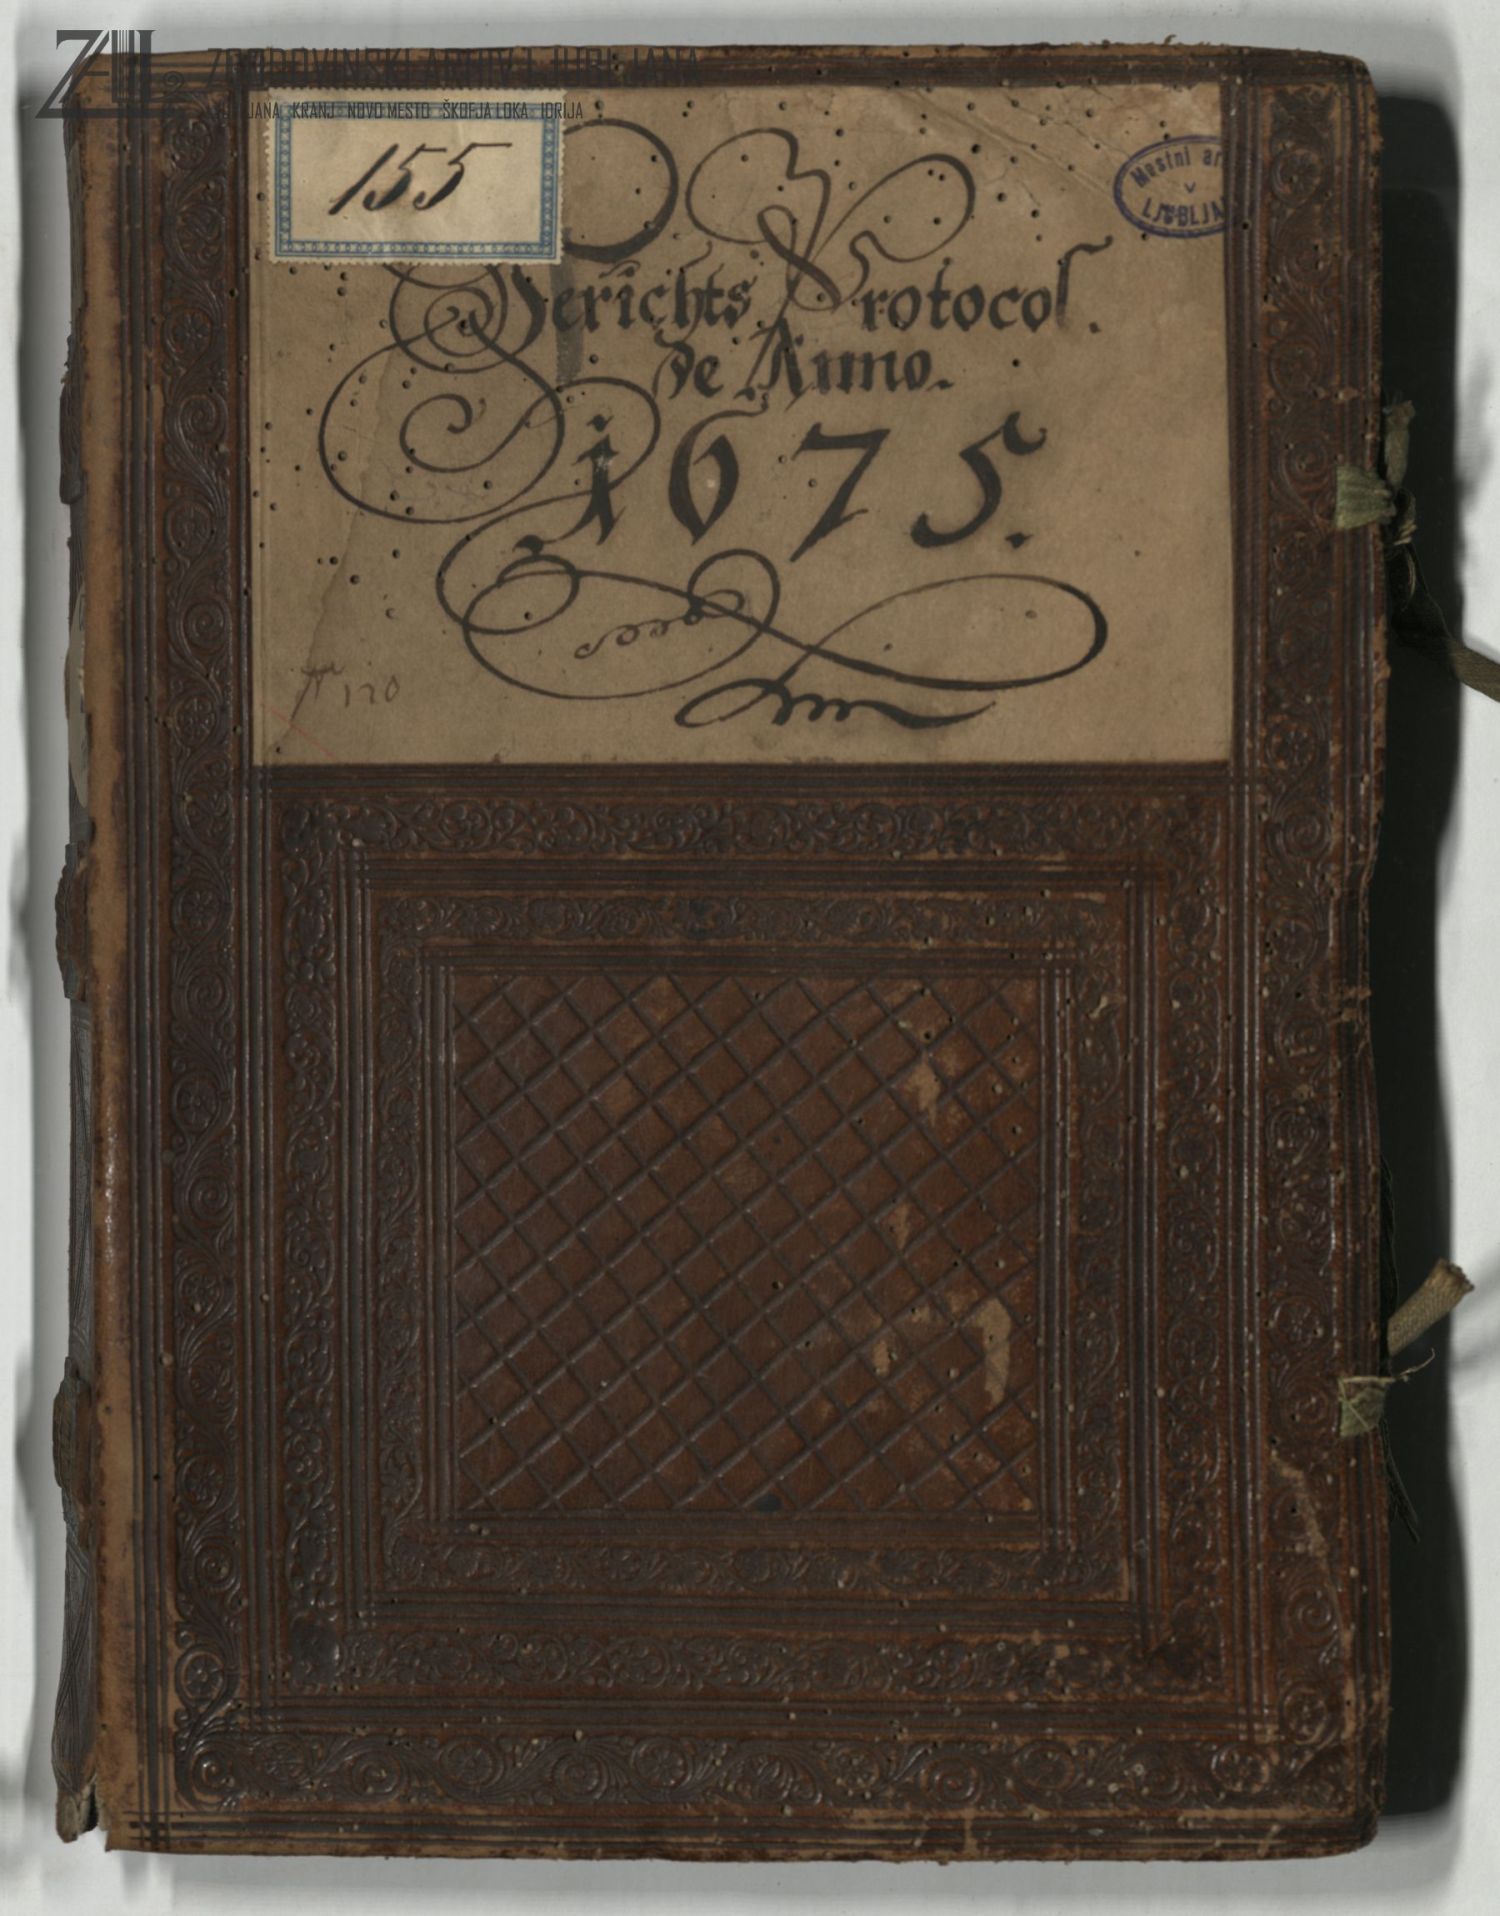 ZGODOVINSKI ARHIV LJUBLJANA
LJUBLJANA KRANJ NOVO MESTO ŠKOFJA LOKA IDRIJA
155
Mestni ar
v
LJUBLJAN
Gerichts Protocol.
de Anno.
1675.
120